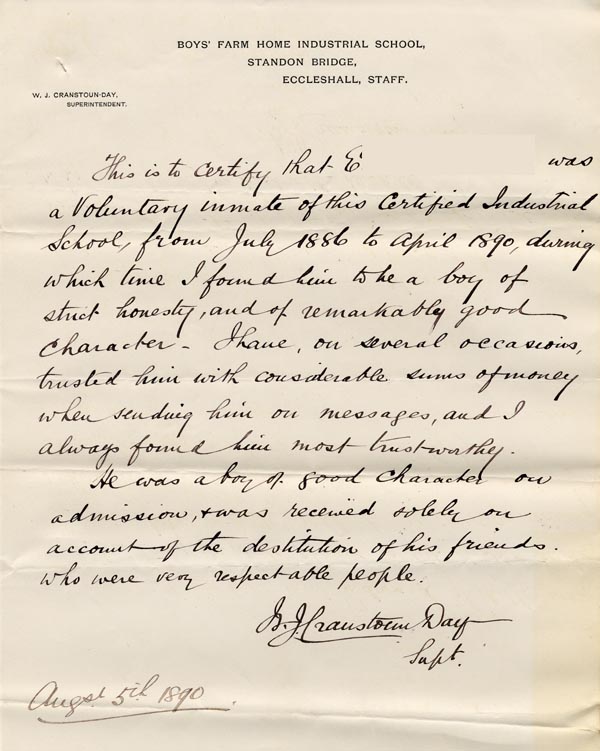 BOYS' FARM HOME INDUSTRIAL SCHOOL,
STANDON BRIDGE,
ECCLESHALL, STAFF.
W. J. CRANSTOUN-DAY,
SUPERINTENDENT.
This is to certify that E was
a Voluntary inmate of this Certified Industrial
School, from July 1886 to April 1890, during
which time I found him to be a boy of
strict honesty, and of remarkably good
character - I have, on several occasions,
trusted him with considerable sums of money
when sending him on messages, and I
always found him most trustworthy.
He was a boy of good character on
admission, & was received solely on
account of the destitution of his friends.
who were very respectable people.
W. J. Cranstoun Day
Supt.
Augst 5th 1890.